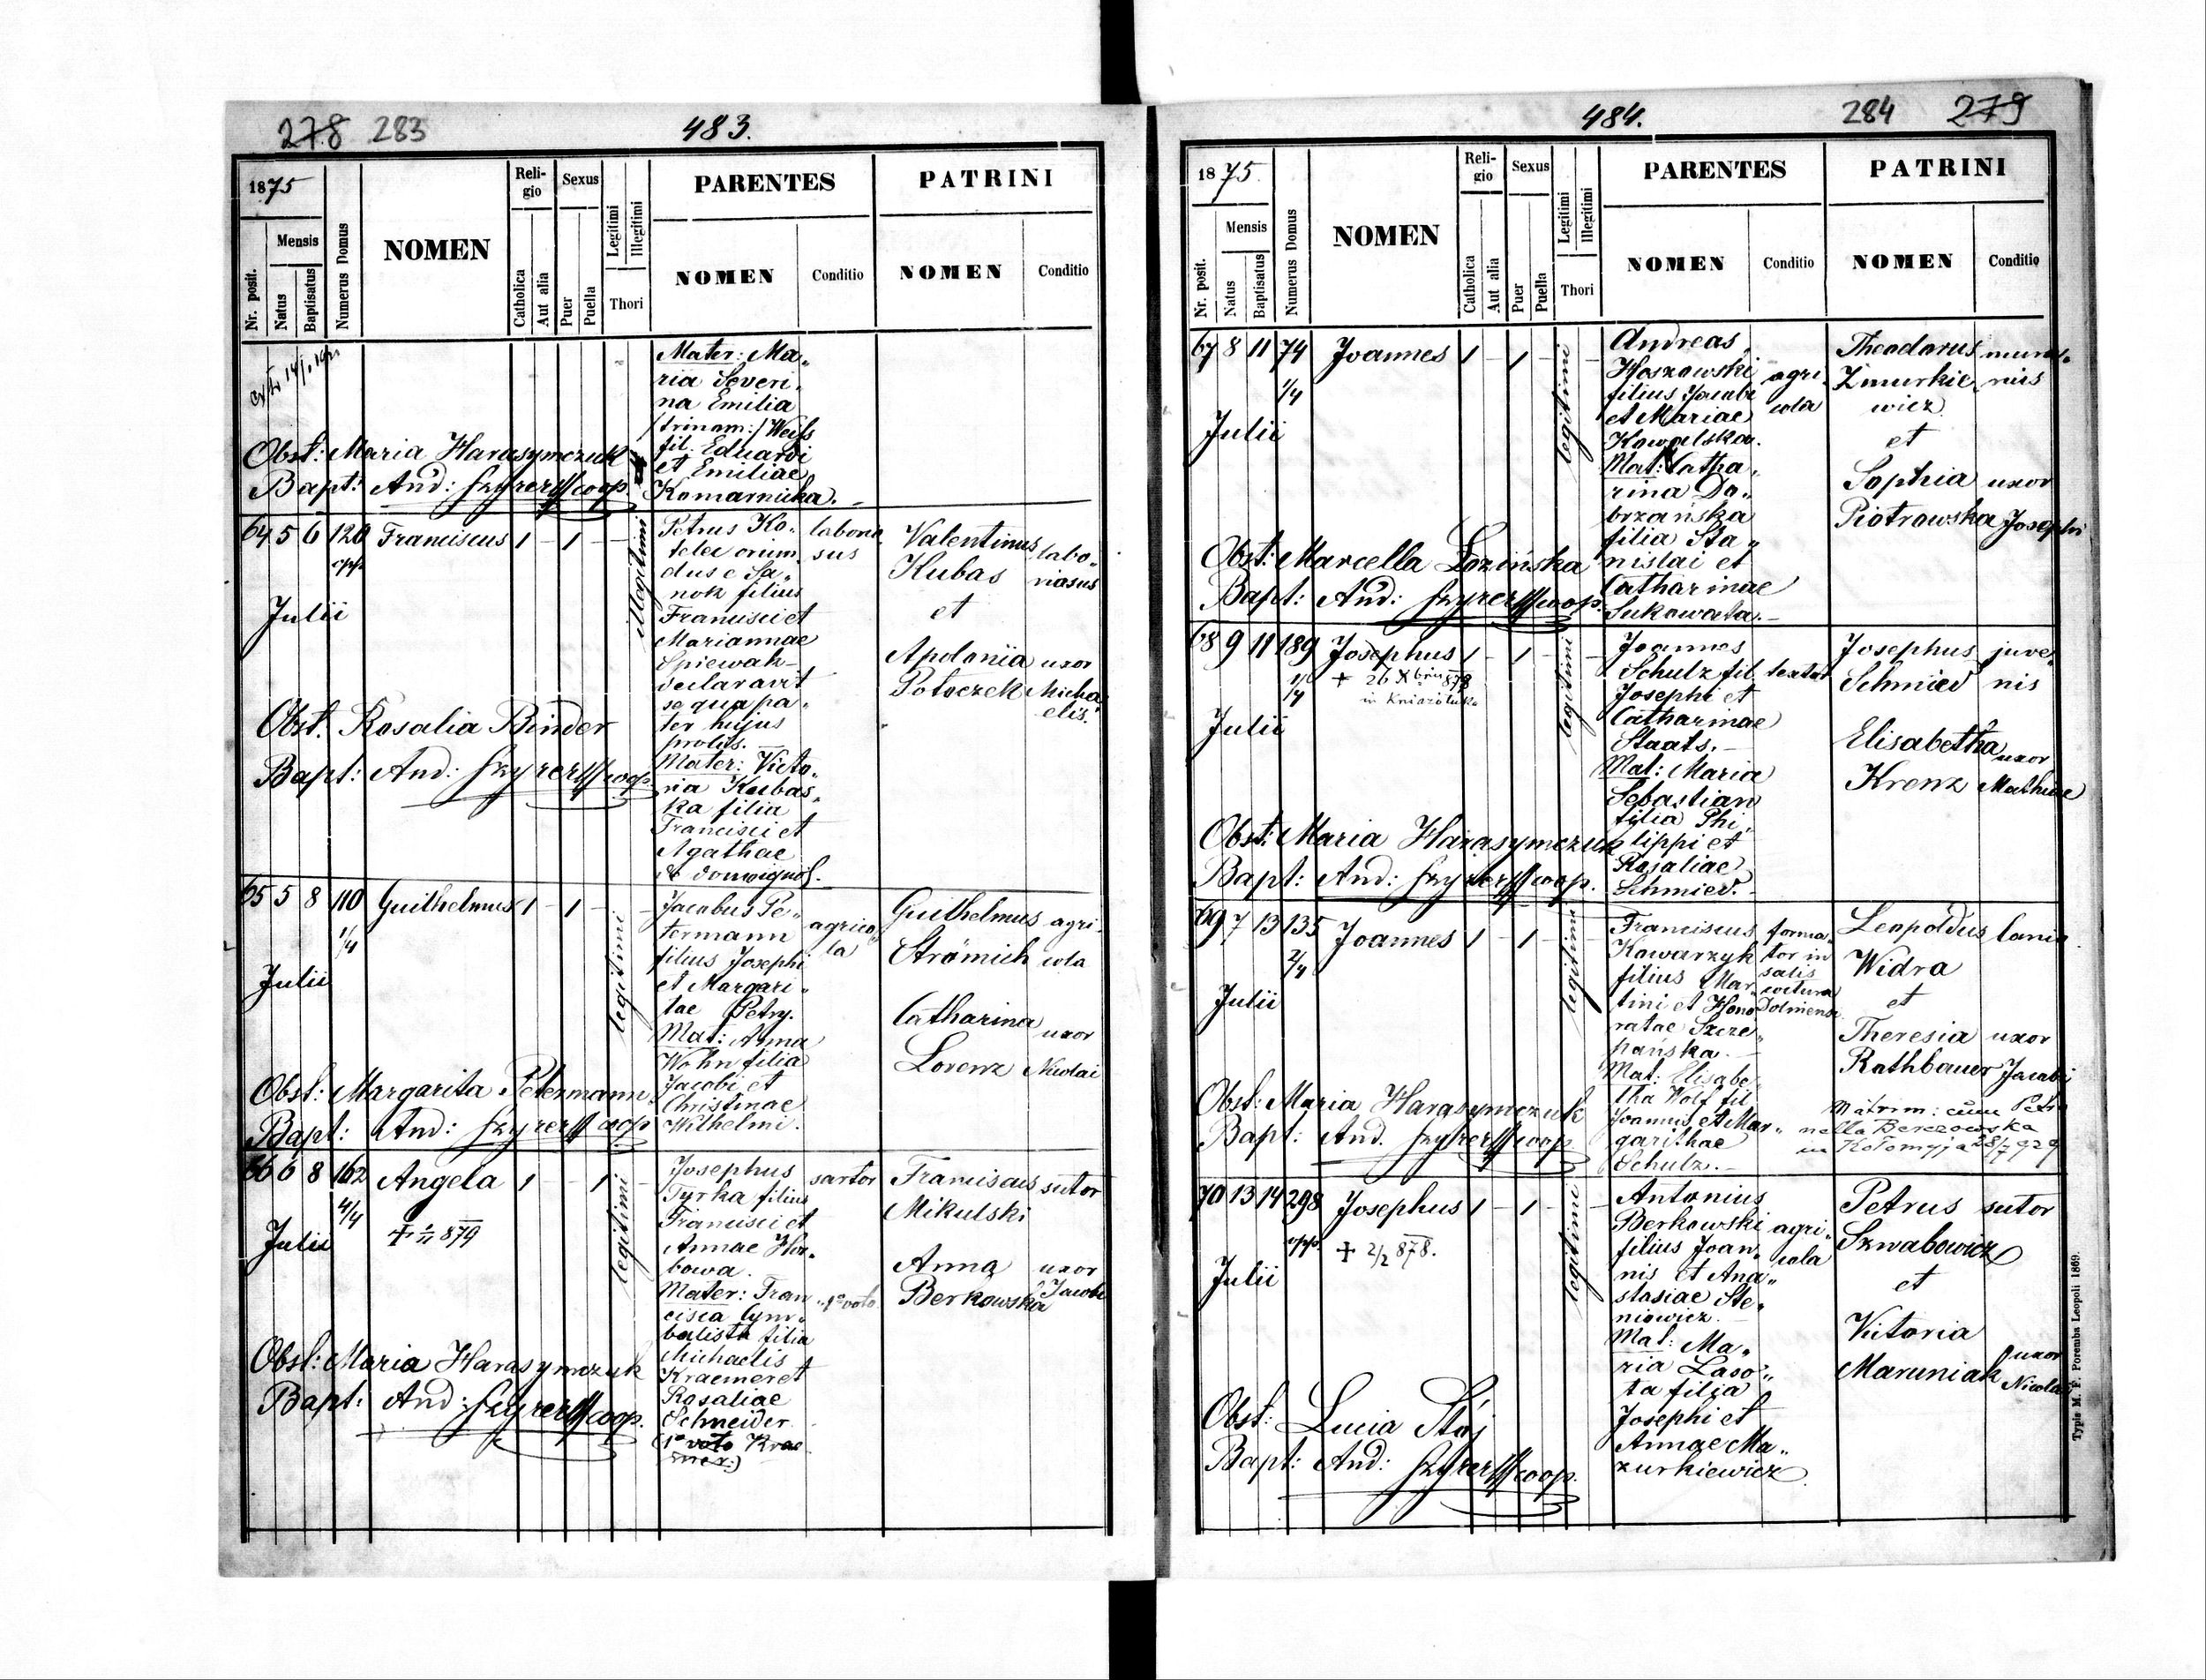 278 283 483.
1875
Nr. posit.
Mensis
Natus
Baptisatus
Numerus Domus
NOMEN
Reli-
gio
Catholica
Aut alia
Sexus
Puer
Puella
Legitimi
Illegitimi
Thori
PARENTES
NOMEN
Conditio
PATRINI
NOMEN
Conditio
Mater: Ma„
ria Severi„
na Emilia
/trinom:/ Weiss
fil. Eduardi
et Emiliae
Komarnicka.
Obst: Maria Harasymczuk
Bapt: And: coop.
64 5 6 120 Franciscus 1 – 1 –
opp.
Julii
illegitimi
Petrus Ko„
telec oriun„
dus e Sa„
nok filius
Francisci et
Mariannae
Spiewak
declaravit
se qua pa„
ter hujus
prolis.
Mater: Victo„
ria Kubas„
ka filia
Francisci et
Agathae
laborio„
sus
Valentinus labo„
Kubas riosus
et
Apolonia uxor
Potoczek Micha„
elis.
Obst: Rosalia Binder
Bapt: And: coop.
65 5 8 110 Guilhelmus 1 – 1 –
1/4
Julii
legitimi
Jacobus Pe„
termann
filius Josephi
et Margari„
tae Petry.
Mat: Anna
Wohn filia
Jacobi et
Christinae
Wilhelmi.
agrico„
la
Guilhelmus agri„
Strömich cola
Catharina uxor
Lorenz Nicolai
Obst: Margarita Petermann
Bapt: And: coop
66 6 8 162 Angela 1 – – 1
4/4
Julii
879
legitimi
Josephus
Tyrka filius
Francisci et
Annae Hor„
bowa.
Mater: Fran„
cisca Cym„
balista filia
Michaelis
Kraemer et
Rosaliae
Schneider
(1º voto Krae
mer:)
sartor
1º voto
Franciscus sutor
Mikulski
Anna uxor
Berkowska Jacobi
Obst: Maria Harasymczuk
Bapt: And: coop.
484. 284 279
1875.
Nr. posit.
Mensis
Natus
Baptisatus
Numerus Domus
NOMEN
Reli-
gio
Catholica
Aut alia
Sexus
Puer
Puella
Legitimi
Illegitimi
Thori
PARENTES
NOMEN
Conditio
PATRINI
NOMEN
Conditio
67 8 11 74 Joannes 1 – 1 –
1/4
Julii
legitimi
Andreas
Hoszowski
filius Jacobi
et Mariae
Kowalska.
Mat: Catha„
rina Do„
brzańska
filia Sta„
nislai et
Catharinae
Sukowata.
agri„
cola
Theodorus
Zmurkie„
wicz
et
Sophia uxor
Piotrowska Josephi
Obst: Marcella Łozińska
Bapt: And: coop.
68 9 11 189 Josephus 1 – 1 –
1/4
+ 26 Xbris 878
in
Julii
legitimi
Joannes
Schulz fil.
Josephi et
Catharinae
Staats.
Mat: Maria
Sebastian
filia Phi„
lippi et
Rosaliae
Schmied.
textor
Josephus juve„
Schmied nis
Elisabetha uxor
Krenz Mathiae
Obst: Maria Harasymczuk
Bapt: And: coop.
69 7 13 135 Joannes 1 – 1 –
2/4
Julii
legitimi
Franciscus
Kowarzyk
filius Mar„
tini et Hono„
ratae Szcze„
pańska.
Mat: Elisabe„
tha Wolf fil.
Joannis et Mar„
garithae
Schulz.
forma„
tor in
salis
coctura
Dolinensi
Leopoldus lanio
Widra
et
Theresia uxor
Rathbauer Jacobi
Matrim: cum Petro„
nella Berezowska
in Kołomyja 28/7 929
Obst: Maria Harasymczuk
Bapt: And. coop
70 13 14 298 Josephus 1 – 1 –
opp.
+ 2/2 878.
Julii
legitimi
Antonius
Berkowski
filius Joan„
nis et Ana„
stasiae Ste„
niowicz.
Mat: Ma„
ria Laso„
ta filia
Josephi et
Annae Ma„
zurkiewicz
agri„
cola
Petrus sutor
Szwabowicz
et
Victoria
Maruniak uxor
Nicolai
Obst: Lucia Stój
Bapt: And: coop.
Typis M. F. Poremba Leopoli 1869.